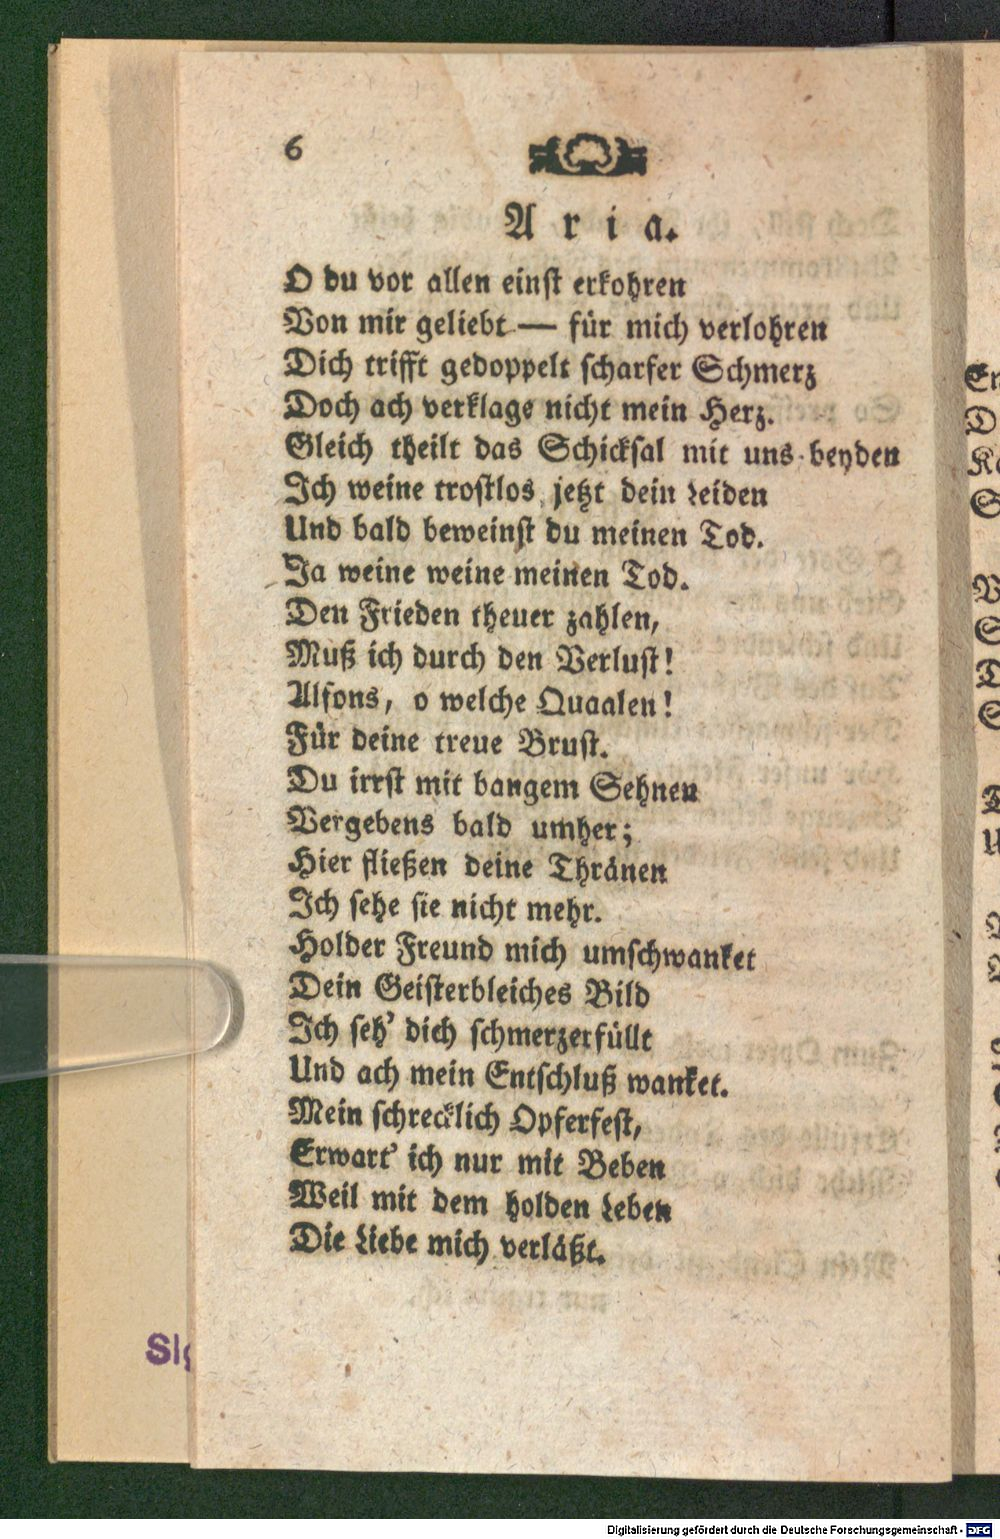 6
Aria.
O du vor allen einst erkohren
Von mir geliebt — für mich verlohren
Dich trifft gedoppelt scharfer Schmerz
Doch ach verklage nicht mein Herz.
Gleich theilt das Schicksal mit uns beyden
Ich weine trostlos jetzt dein Leiden
Und bald beweinst du meinen Tod.
Ja weine weine meinen Tod.
Den Frieden theuer zahlen,
Muß ich durch den Verlust!
Alfons, o welche Quaalen!
Für deine treue Brust.
Du irrst mit bangem Sehnen
Vergebens bald umher;
Hier fließen deine Thränen
Ich sehe sie nicht mehr.
Holder Freund mich umschwanket
Dein Geisterbleiches Bild
Ich seh' dich schmerzerfüllt
Und ach mein Entschluß wanket.
Mein schrecklich Opferfest,
Erwart' ich nur mit Beben
Weil mit dem holden Leben
Die Liebe mich verläßt.
Digitalisierung gefördert durch die Deutsche Forschungsgemeinschaft - DFG